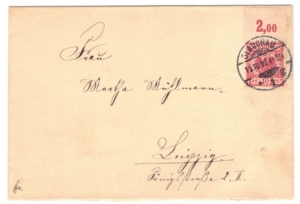 2,00
GLAUCHAU
Frau
Martha Mühlmann.
Leipzig.
Königstraße 2. II.
fr.